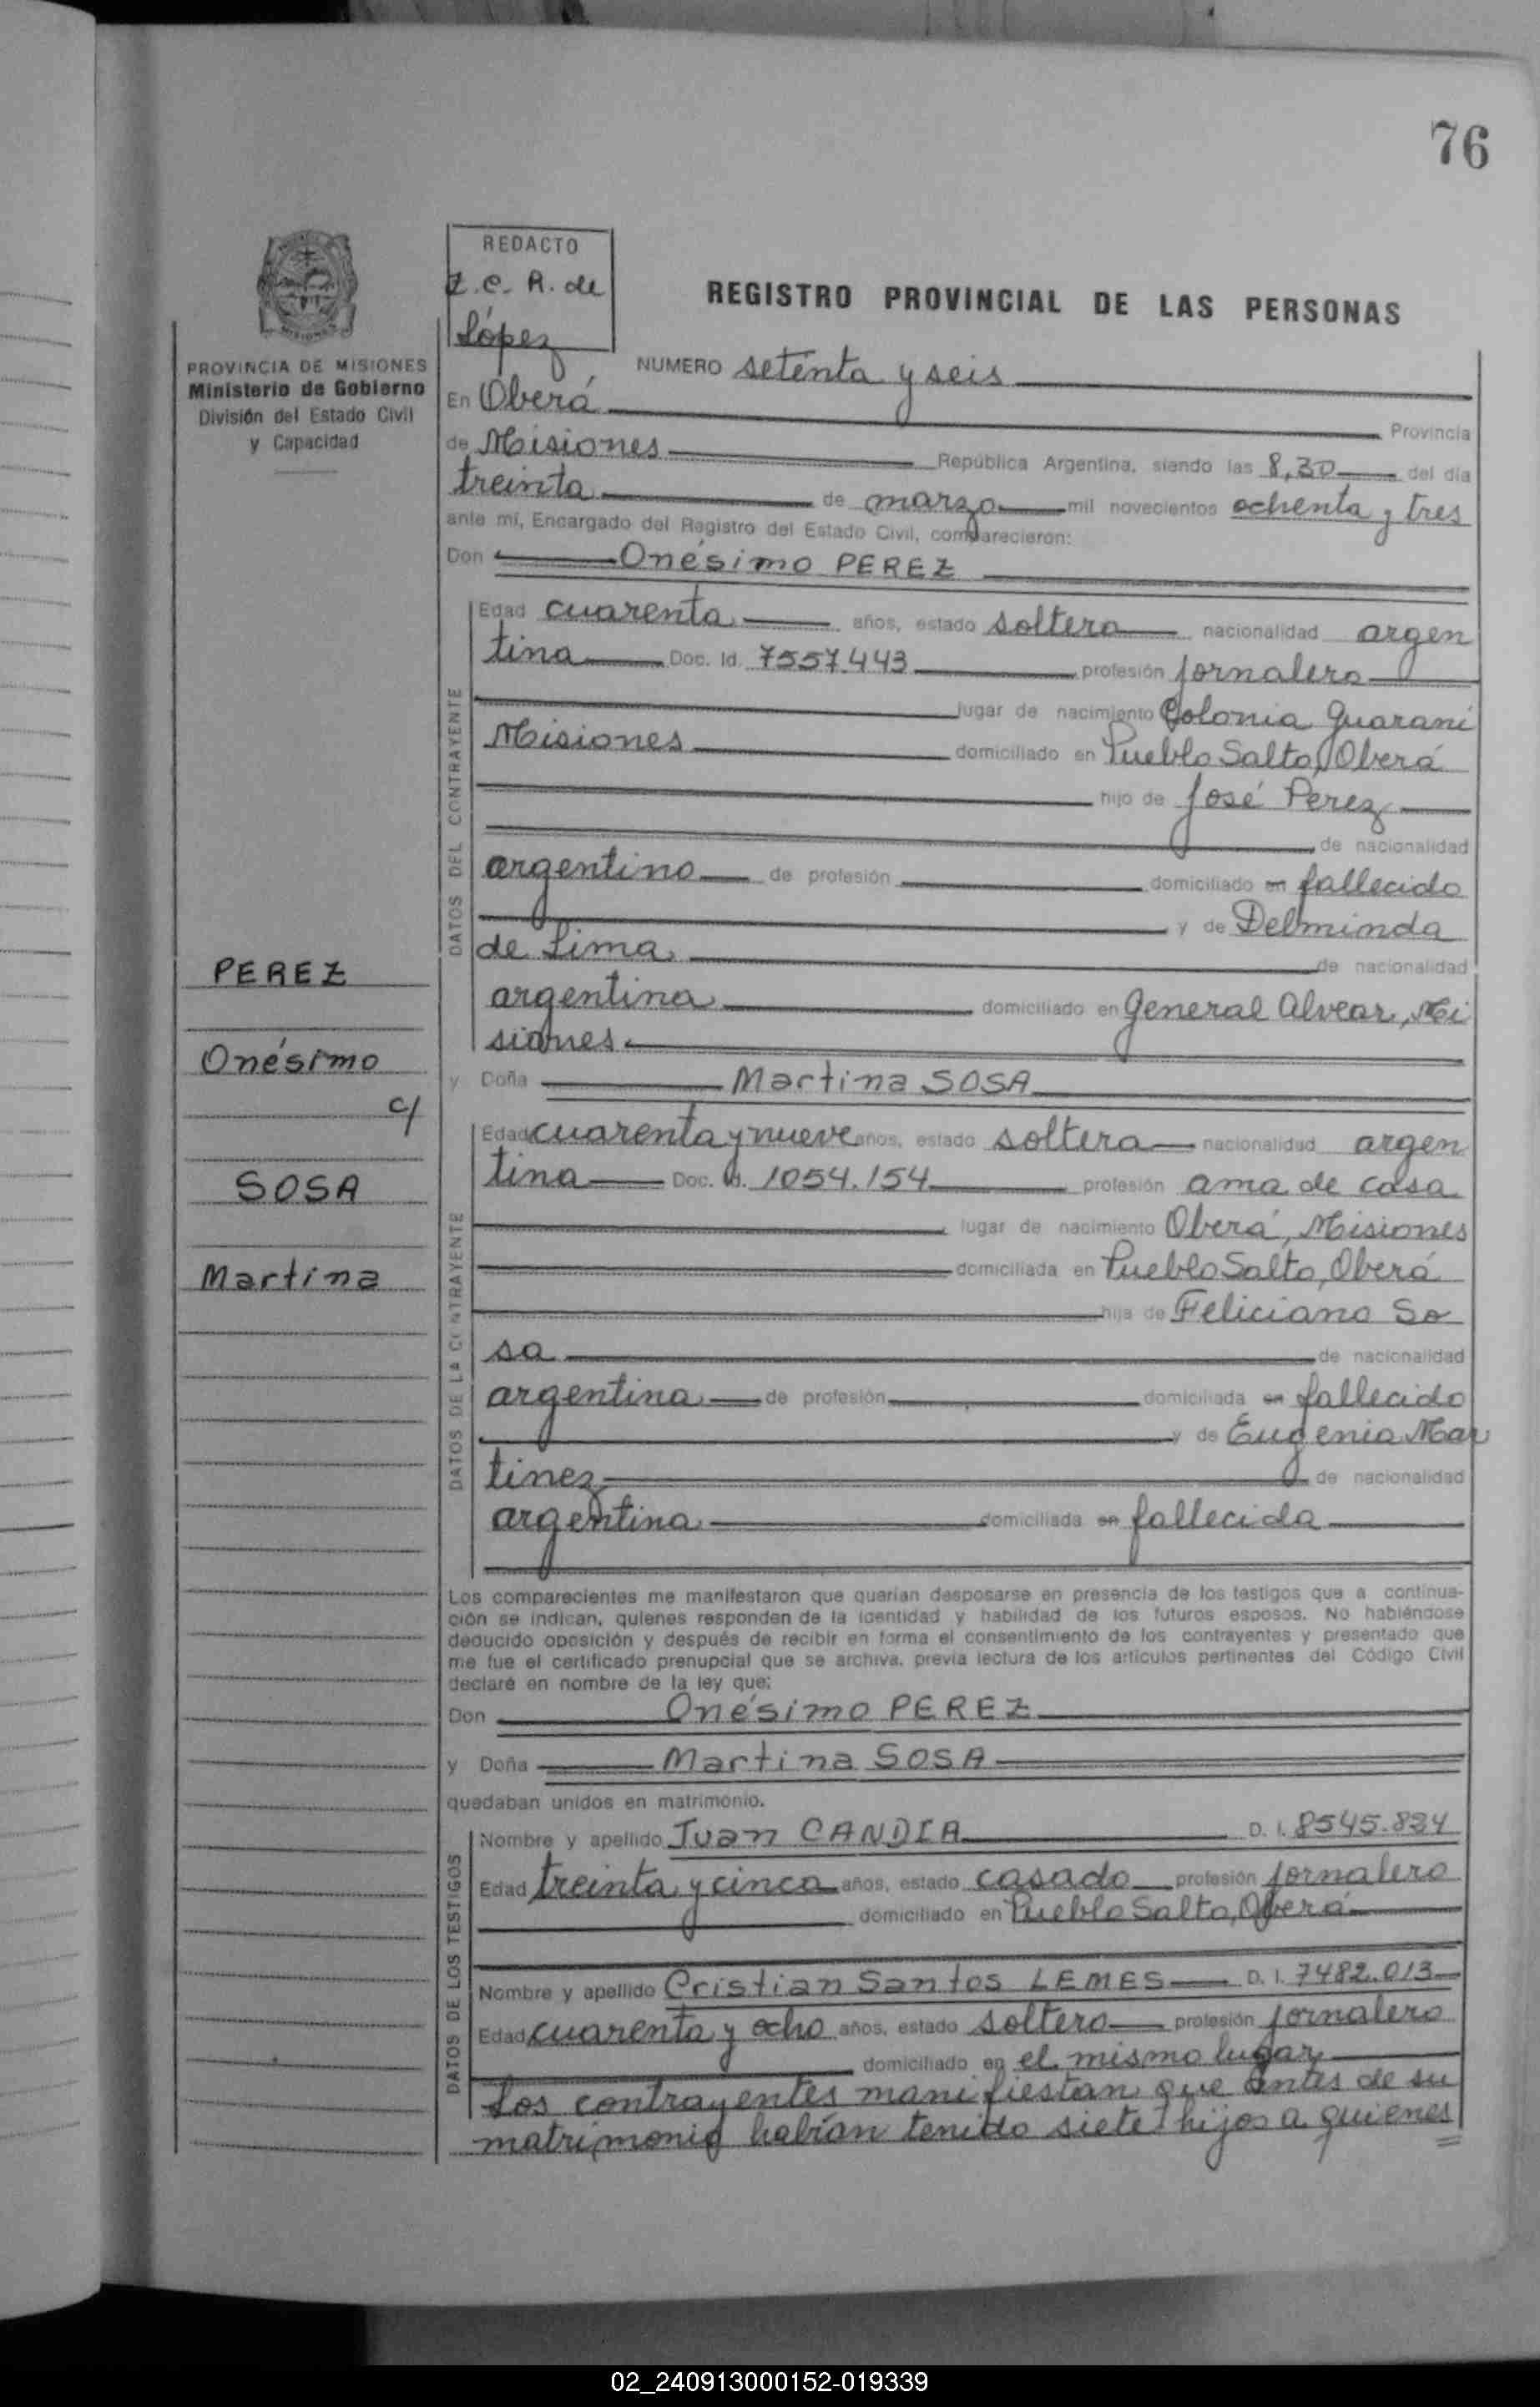 76
REDACTO
Z.C. R. de
López
REGISTRO PROVINCIAL DE LAS PERSONAS
PROVINCIA DE MISIONES
Ministerio de Gobierno
División del Estado Civil
y Capacidad
NUMERO setenta y seis
En Oberá Provincia
de Misiones República Argentina, siendo las 8,30 del día
treinta de marzo mil novecientos ochenta y tres
ante mí, Encargado del Registro del Estado Civil, comparecieron:
Don Onésimo PEREZ
DATOS DEL CONTRAYENTE
Edad cuarenta años, estado soltero nacionalidad argen
tina Doc. Id. 7557.443 profesión jornalero
lugar de nacimiento Colonia Guaraní
Misiones domiciliado en Pueblo Salto, Oberá
hijo de José Perez
de nacionalidad
argentino de profesión domiciliado en fallecido
y de Delminda
de Lima de nacionalidad
argentina domiciliado en General Alvear, Mi
siones
y Doña Martina SOSA
DATOS DE LA CONTRAYENTE
Edad cuarenta y nueve años, estado soltera nacionalidad argen
tina Doc. Id. 1054.154 profesión ama de casa
lugar de nacimiento Oberá, Misiones
domiciliada en Pueblo Salto, Oberá
hija de Feliciano So
sa de nacionalidad
argentina de profesión domiciliada en fallecido
y de Eugenia Mar
tinez de nacionalidad
argentina domiciliada en fallecida
PEREZ
Onésimo
c/
SOSA
Martina
Los comparecientes me manifestaron que querían desposarse en presencia de los testigos que a continua-
ción se indican, quienes responden de la identidad y habilidad de los futuros esposos. No habiéndose
deducido oposición y después de recibir en forma el consentimiento de los contrayentes y presentado que
me fue el certificado prenupcial que se archiva, previa lectura de los artículos pertinentes del Código Civil
declaré en nombre de la ley que:
Don Onésimo PEREZ
y Doña Martina SOSA
quedaban unidos en matrimonio.
DATOS DE LOS TESTIGOS
Nombre y apellido Juan CANDIA D. I. 8545.824
Edad treinta y cinco años, estado casado profesión jornalero
domiciliado en Pueblo Salto, Oberá
Nombre y apellido Cristian Santos LEMES D. I. 7482.013
Edad cuarenta y ocho años, estado soltero profesión jornalero
domiciliado en el mismo lugar
Los contrayentes manifiestan que antes de su
matrimonio habían tenido siete hijos a quienes
02_240913000152-019339